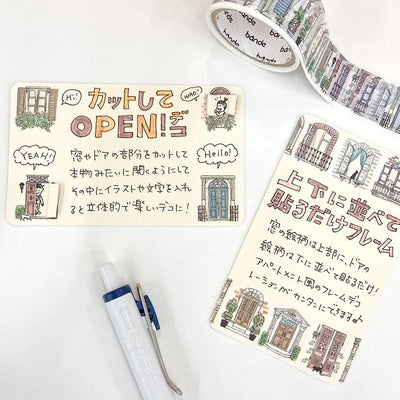 bande
bande
Hi!
カットして
WAO!
OPEN!デコ
YEAH!
Hello!
窓やドアの部分をカットして
本物みたいに開くようにして
その中にイラストや文字を入れ
ると立体的で楽しいデコに!
上下に並べて
貼るだけフレーム
窓の絵柄は上部に、ドアの
絵柄は下に並べて貼るだけ!
アパートメント風のフレームデコ
レーションがカンタンにできます♪